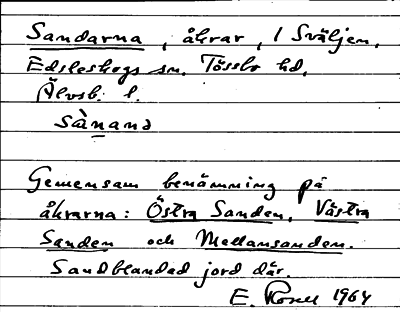 Sandarna, åkrar, 1 Sväljen,
Edsleskogs sn. Tössbo hd,
Älvsb. l.
sànanə
Gemensam benämning på
åkrarna: Östra Sanden, Västra
Sanden och Mellansanden.
Sandblandad jord där.
E. 1964